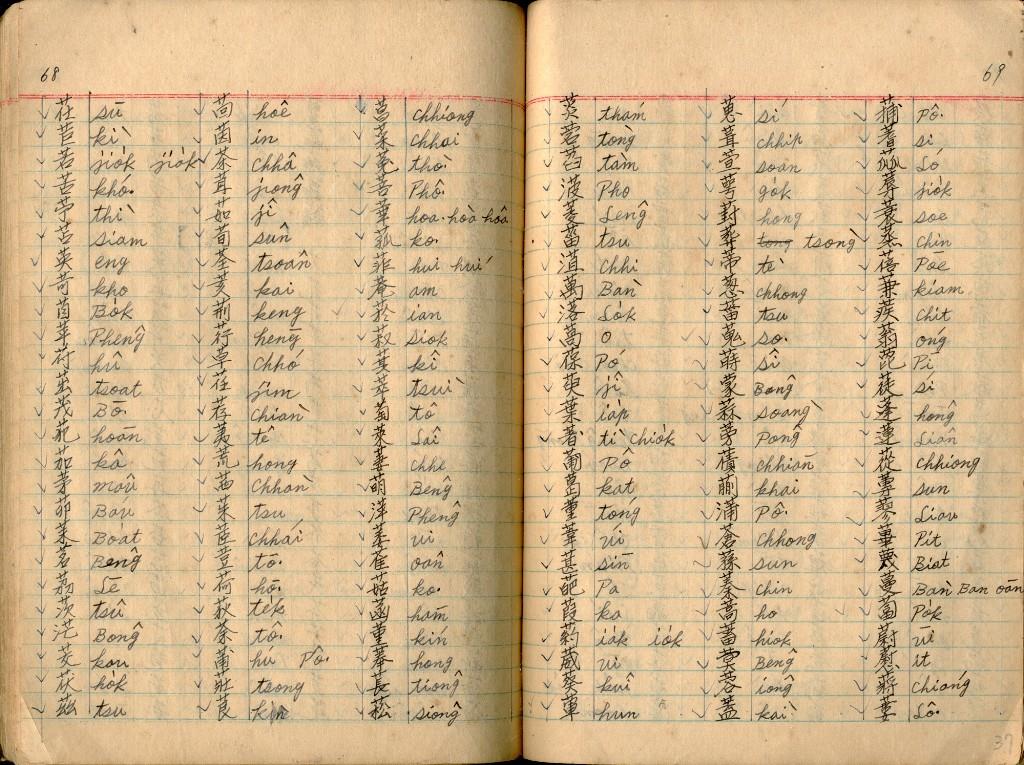 68
茌 sū 茴 hoê 菖 chhiong
苣 kī 茵 in 菜 chhai
若 jio̍k jio̍k 茶 chhâ 菟 thò͘
苦 khó͘ 茸 jiông 菩 Phô͘
苧 thī 茹 jî 華 hoa hoà hoâ
苫 siam 荀 sûn 菰 ko͘
英 eng 荃 tsoân 菲 hui huí
苛 kho 荄 kai 菴 am
茵 Bo̍k 荆 keng 菸 ian
苹 Phêng 荇 hēng 菽 siok
苻 hû 草 chhó 萁 kî
茁 tsoat 荏 jím 萃 tsuī
茂 Bō͘ 荐 Chiàn 萄 tô
范 hoān 荑 tê 萊 Lâi
茄 kâ 荒 hong 萋 chhe
茅 maû 茜 Chhàn 萌 Bêng
茆 Bau 茱 tsu 萍 Phêng
茉 Boa̍t 茝 chhái 萎 ui
茗 Bêng 荳 tō͘ 萑 oân
荔 Lē 荷 hô 菇 ko͘
茨 tsû 荻 te̍k 菡 hām
茫 Bông 荼 tô͘ 堇 kín
茭 kau 莆 hú Pô͘ 葑 hong
茯 ho̍k 莊 tsong 萇 tiông
茲 tsu 莨 kìn 菘 siông
69
菼 thám 葸 sí 蒱 Pô͘
菪 tōng 葺 chhip 蓍 si
萏 tām 萱 soan 菰 Ló
菠 Pho 萼 go̍k 蓐 jio̍k
菱 Lêng 葑 hong 蓑 soe
菑 tsu 葬 tsòng 蓁 chin
菹 Chhi 蒂 tè 蓓 Pōe
萬 Bān 葱 chhong 蒹 kiam
落 Lo̍k 菑 tsu 蒺 chit
萵 o 蒐 so͘ 蓊 óng
葆 Pó 蒔 sî 蓖 Pī
萸 jî 蒙 Bông 蓰 sí
葉 ia̍p 蒜 soàng 蓬 hông
著 tì chio̍k 蒡 Póng 蓮 Liân
葡 Pô 蒨 chhiān 蓯 chhiong
葛 kat 蒯 khai 蓴 sun
董 tóng 蒲 Pô͘ 蓼 Liau
葦 úi 蒼 chhong 蓽 Pit
甚 sīn 蓀 sun 蔑 Bia̍t
葩 Pa 蓁 Chin 蔓 Bàn Ban oān
葭 ka 蒿 ho 蔔 Po̍k
葯 ia̍k io̍k 蓄 hiok 蔚 uì
葳 ui 蓂 Bêng 蔚 it
葵 kuî 蓉 iông 蔣 Chióng
葷 hun 蓋 kài 蔞 Lô͘
37